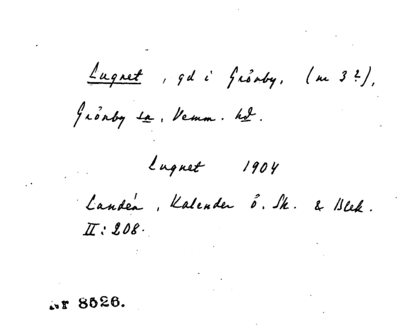 Lugnet, gd i Grönby, (nr 3?),
Grönby sn, Vemm. hd.
Lugnet 1904
Landén, Kalender ö. Sk. & Blek.
II: 208.
Nr 8526.